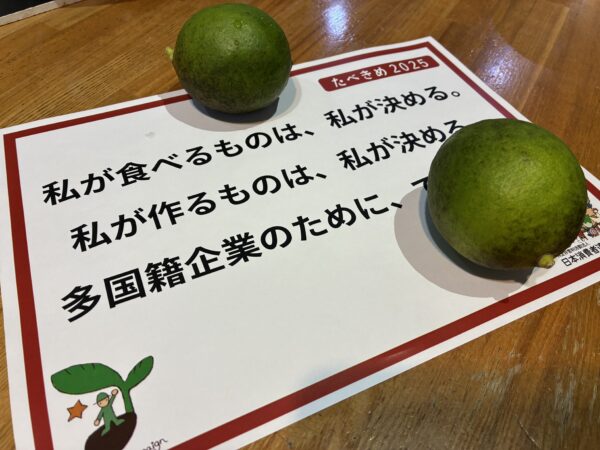 たべきめ2025
私が食べるものは、私が決める。
私が作るものは、私が決める
多国籍企業のために、
日本消費者
paign